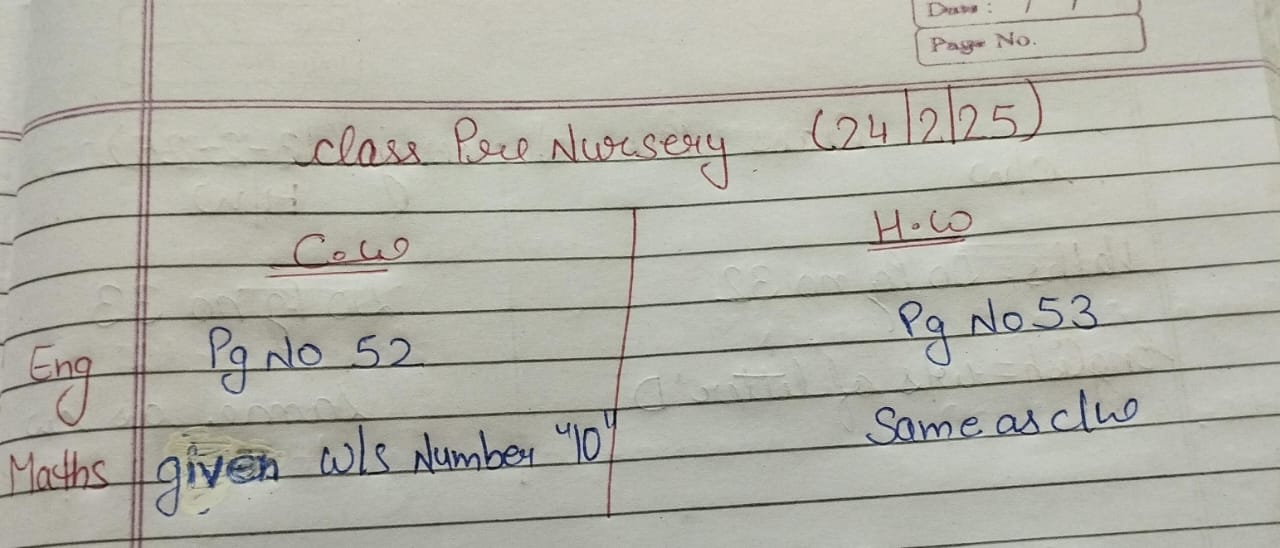 Date : / /
Page No.
class Pre Nursery (24/2/25)
C.w H.w
Eng Pg No 52 Pg No 53
Maths given w/s Number "10" Same as c/w